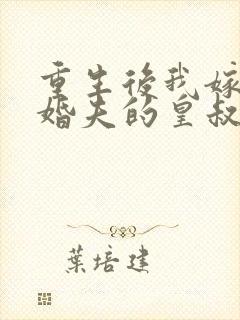 重生後我嫁
婚夫的皇叔
葉培建